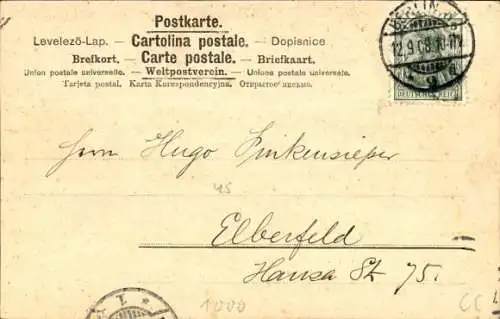 Postkarte.
Levelező-Lap. — Cartolina postale. — Dopisnice
Brefkort. — Carte postale. — Briefkaart.
Union postale universelle. — Weltpostverein. — Unione postale universale.
Tarjeta postal. Karta Korespondencyjna. Открытое письмо.
BERLIN
12.9.03.10-11V.
DEUTSCHES REICH
Herrn Hugo Finkensieper
45
Elberfeld
Hansa St. 75.
1000